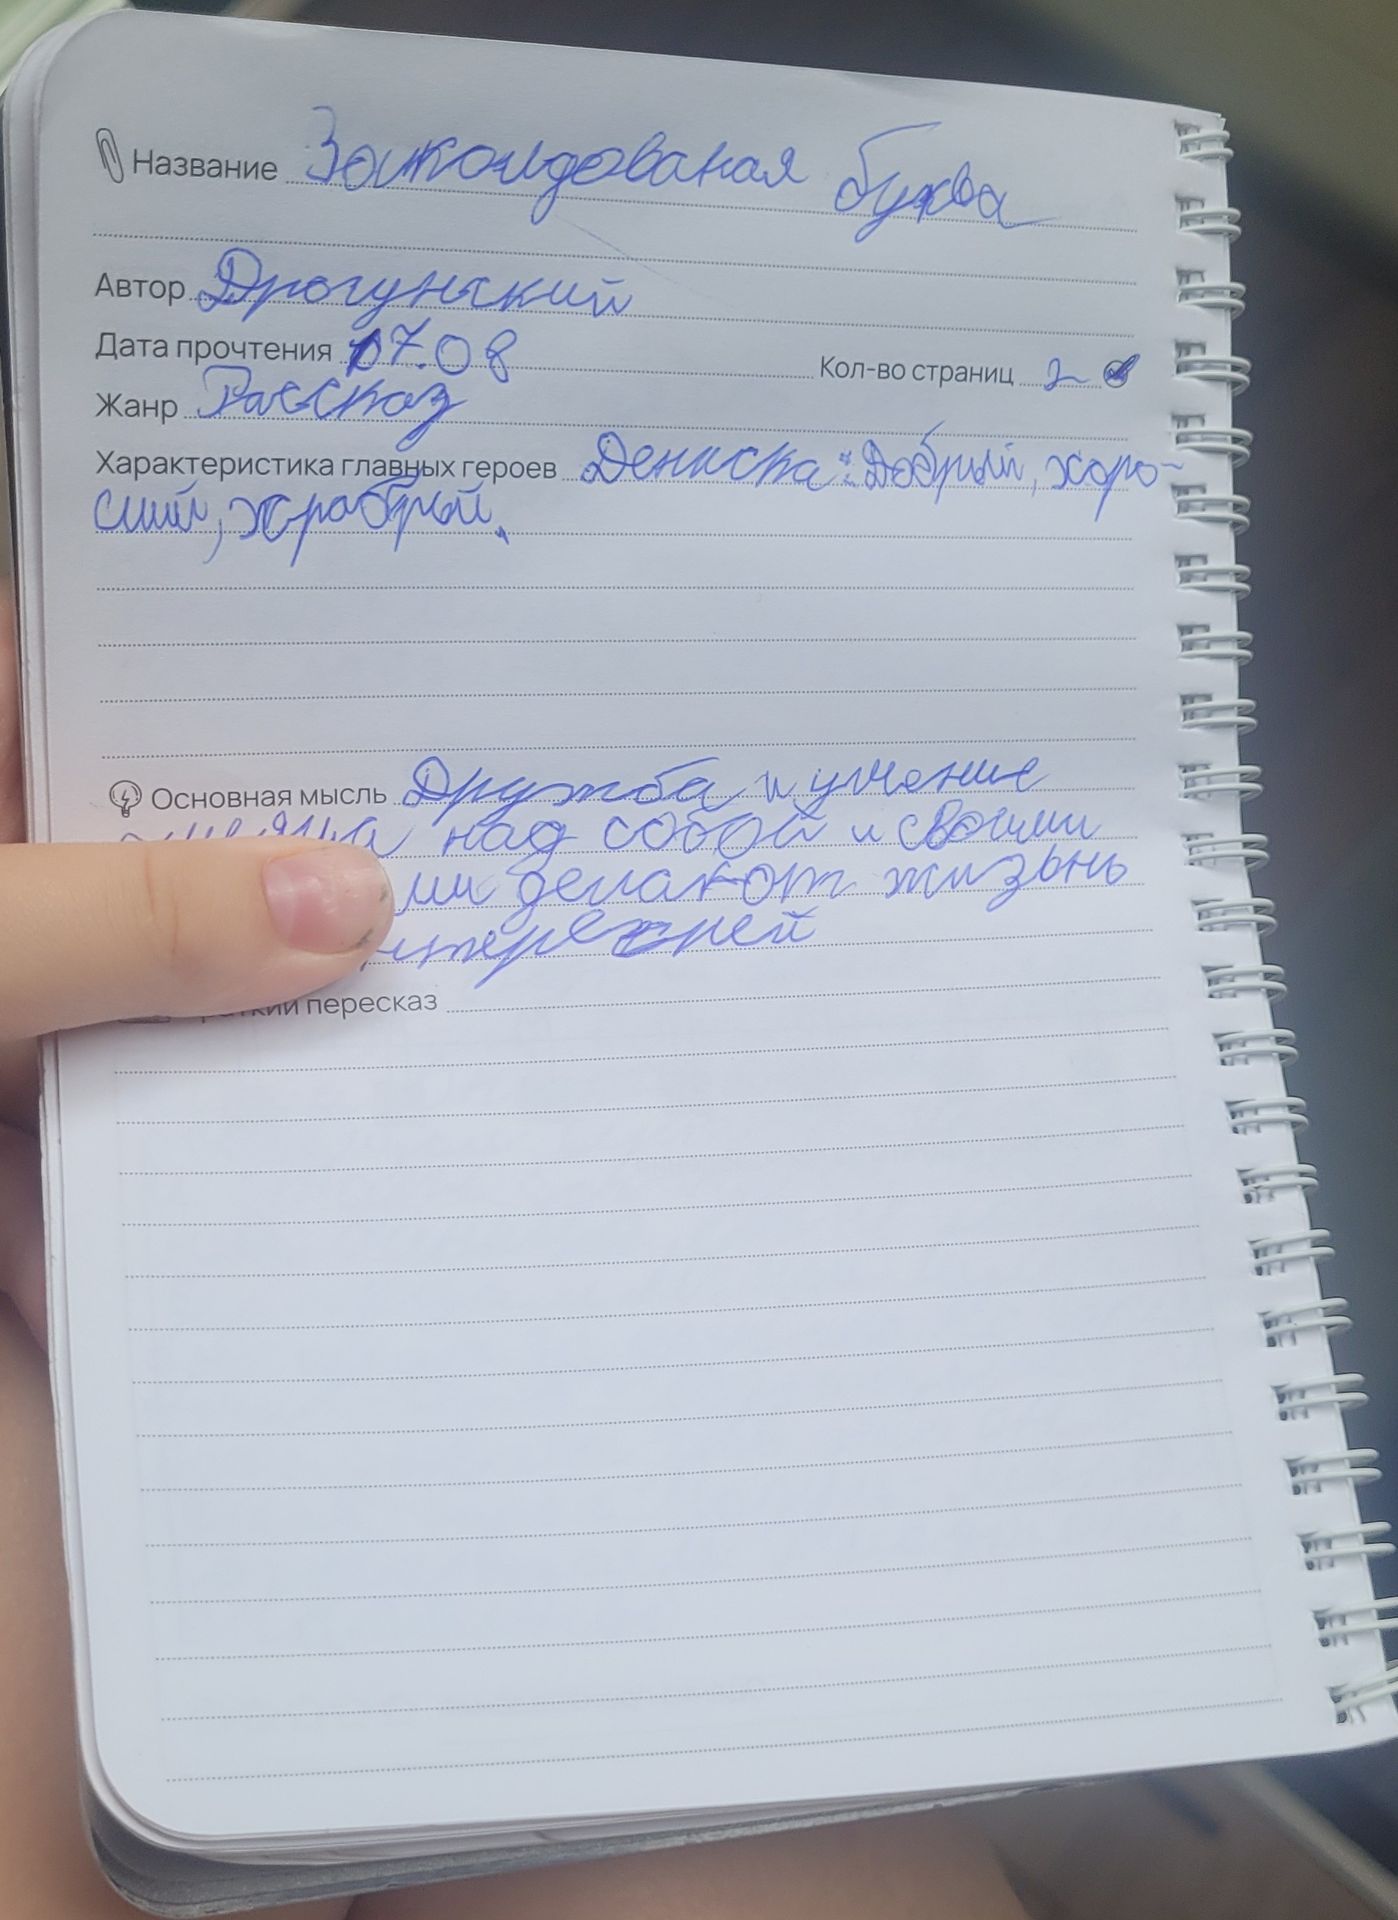 Название Заколдованая буква
Автор Драгунский
Дата прочтения 07.08 Кол-во страниц 2
Жанр Рассказ
Характеристика главных героев Дениска: Добрый, хоро-
ший, храбрый.
Основная мысль Дружба и умение
над собой и своими
делают жизнь
пересказ